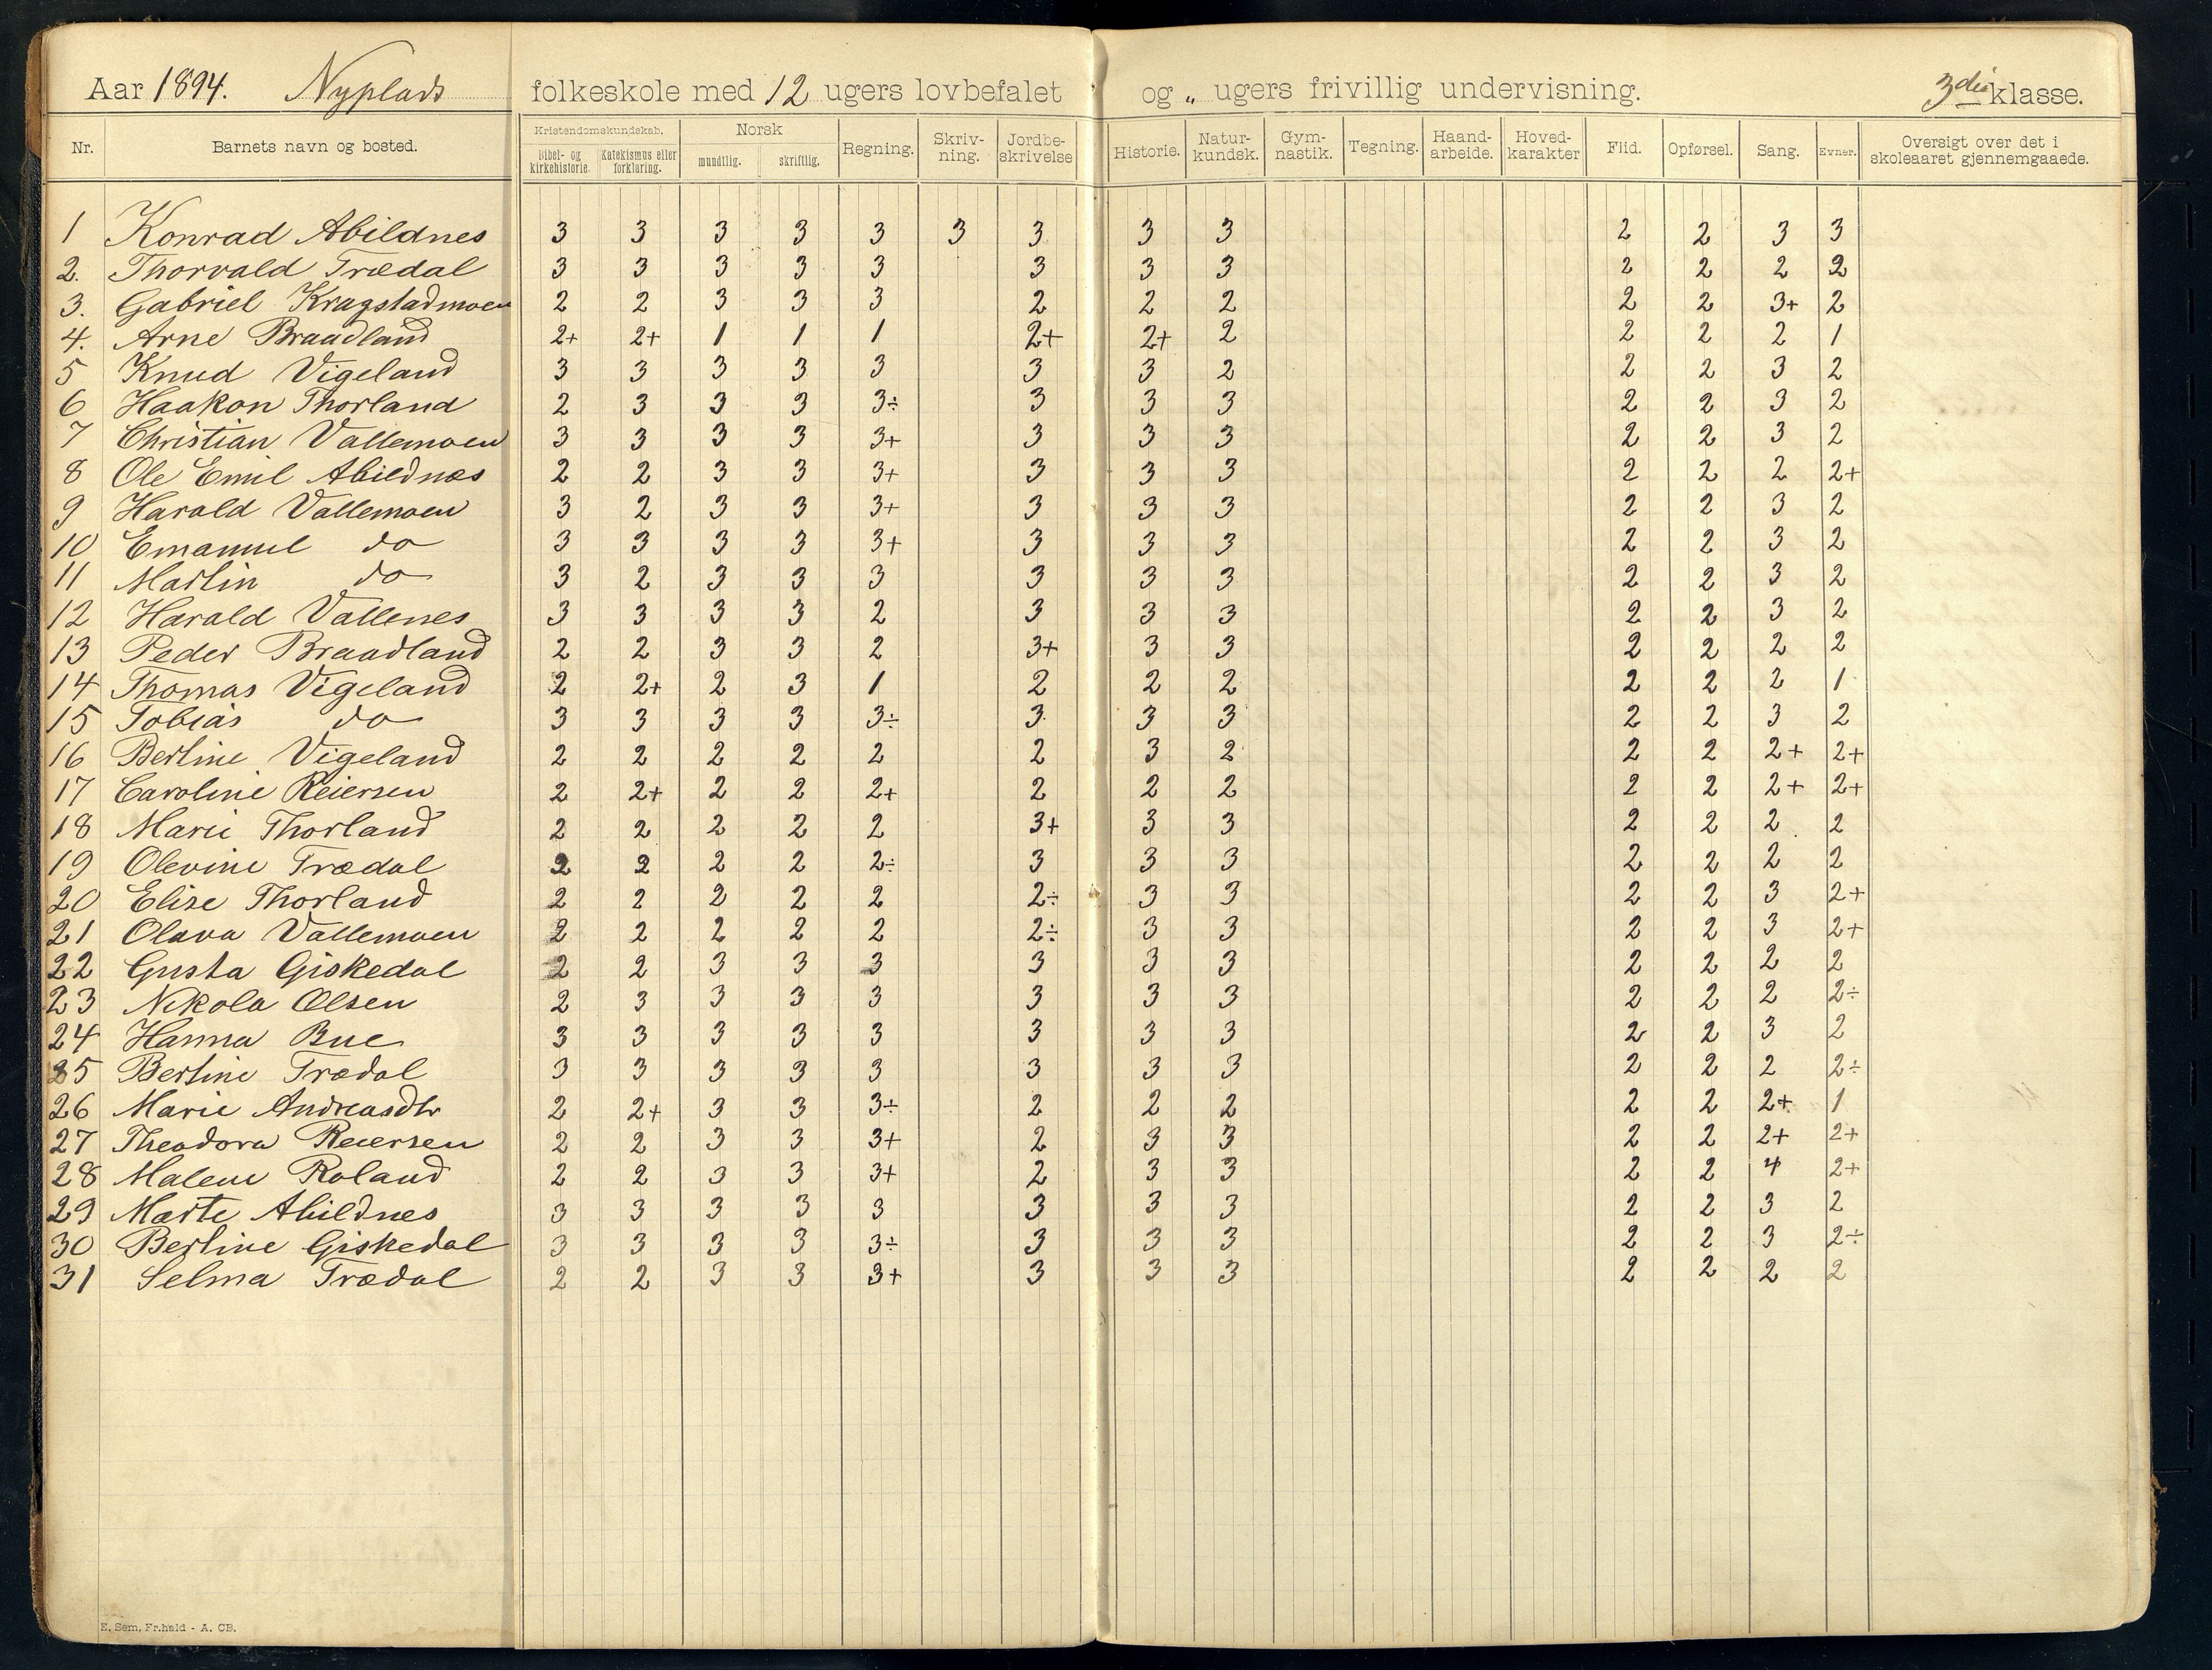 Aar 1894. Nyplads folkeskole med 12 ugers lovbefalet og „ ugers frivillig undervisning. 3die klasse.
Nr. Barnets navn og bosted. Kristendomskundskab. Bibel- og kirkehistorie. Katekismus eller forklaring. Norsk mundtlig. skriftlig. Regning. Skriv-ning. Jordbe-skrivelse Historie. Natur-kundsk. Gym-nastik. Tegning. Haand-arbeide. Hoved-karakter Flid. Opførsel. Sang. Evner. Oversigt over det i skoleaaret gjennemgaaede.
1 Konrad Abildnes 3 3 3 3 3 3 3 3 3 2 2 3 3
2. Thorvald Trædal 3 3 3 3 3 3 3 3 2 2 2 2
3. Gabriel Kragstadmoen 2 2 3 3 3 2 2 2 2 2 3+ 2
4. Arne Braadland 2+ 2+ 1 1 1 2+ 2+ 2 2 2 2 1
5 Knud Vigeland 3 3 3 3 3 3 3 2 2 2 3 2
6 Haakon Thorland 2 3 3 3 3÷ 3 3 3 2 2 3 2
7 Christian Vallemoen 3 3 3 3 3+ 3 3 3 2 2 3 2
8 Ole Emil Abildnæs 2 2 3 3 3+ 3 3 3 2 2 2 2+
9 Harald Vallemoen 3 2 3 3 3+ 3 3 3 2 2 3 2
10 Emanuel do 3 3 3 3 3+ 3 3 3 2 2 3 2
11 Martin do 3 2 3 3 3 3 3 3 2 2 3 2
12 Harald Vallenes 3 3 3 3 2 3 3 3 2 2 3 2
13 Peder Braadland 2 2 3 3 2 3+ 3 3 2 2 2 2
14 Thomas Vigeland 2 2+ 2 3 1 2 2 2 2 2 2 1
15 Tobias do 3 3 3 3 3÷ 3 3 3 2 2 3 2
16 Bertine Vigeland 2 2 2 2 2 2 3 2 2 2 2+ 2+
17 Caroline Reiersen 2 2+ 2 2 2+ 2 2 2 2 2 2+ 2+
18 Marie Thorland 2 2 2 2 2 3+ 3 3 2 2 2 2
19 Olevine Trædal 2 2 2 2 2÷ 3 3 3 2 2 2 2
20 Elise Thorland 2 2 2 2 2 2÷ 3 3 2 2 3 2+
21 Olava Vallemoen 2 2 2 2 2 2÷ 3 3 2 2 3 2+
22 Gusta Giskedal 2 2 3 3 3 3 3 3 2 2 2 2
23 Nikola Olsen 2 3 3 3 3 3 3 3 2 2 2 2÷
24 Hanna Bue 3 3 3 3 3 3 3 3 2 2 3 2
25 Bertine Trædal 3 3 3 3 3 3 3 3 2 2 2 2÷
26 Marie Andreasdtr 2 2+ 3 3 3÷ 2 2 2 2 2 2+ 1
27 Theodora Reiersen 2 2 3 3 3+ 2 3 3 2 2 2+ 2+
28 Malene Roland 2 2 3 3 3+ 2 3 3 2 2 4 2+
29 Marte Abildnes 3 3 3 3 3 3 3 3 2 2 3 2
30 Bertine Giskedal 3 3 3 3 3÷ 3 3 3 2 2 3 2÷
31 Selma Trædal 2 2 3 3 3+ 3 3 3 2 2 2 2
E. Sem, Fr.hald - A. CB.